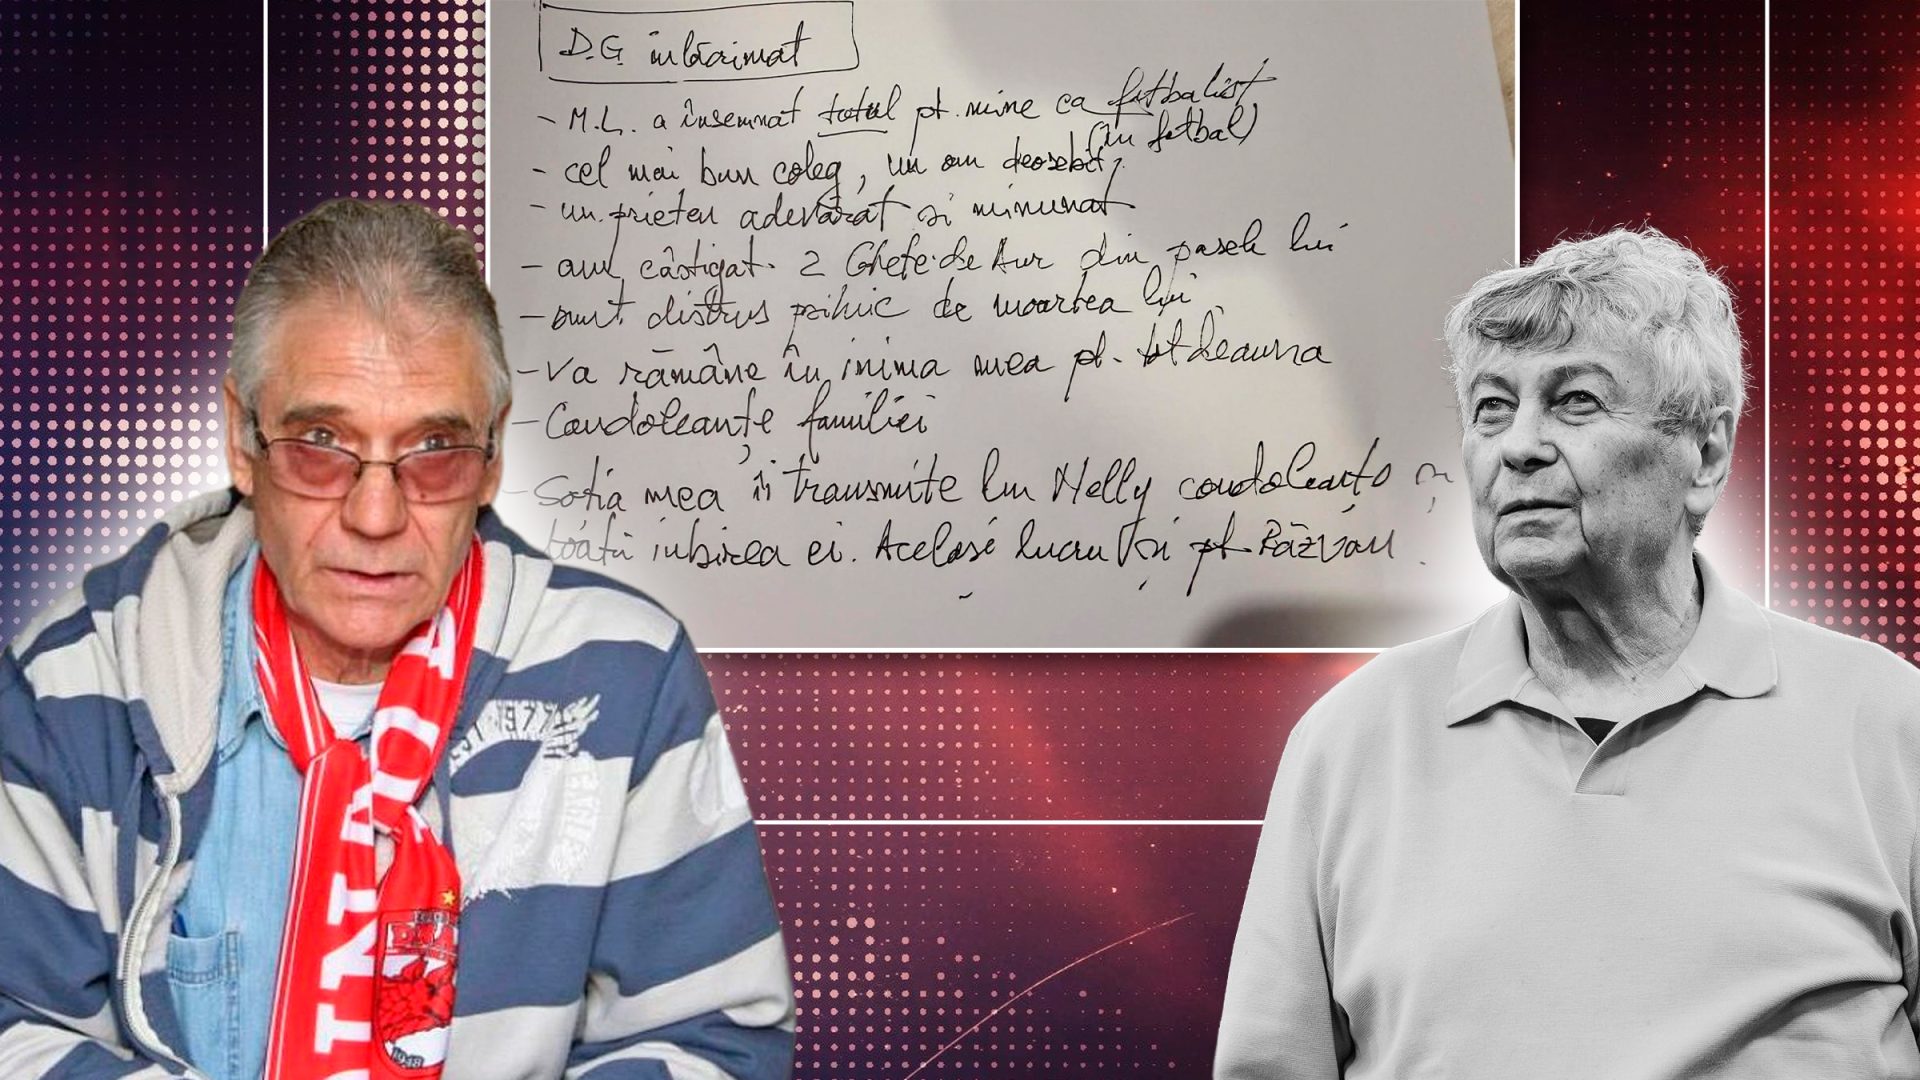 D.G înlăcrimat
- M.L. a însemnat totul pt. mine ca fotbalist
(în fotbal)
- cel mai bun coleg, un om deosebit,
- un prieten adevărat și minunat
- am câștigat 2 Ghete de Aur din pasele lui
- sunt distrus psihic de moartea lui
- Va rămâne în inima mea pt. totdeauna
- Condoleanțe familiei
- Soția mea îi transmite lui Nelly condoleanțe și
toată iubirea ei. Același lucru și pt Răzvan
DINAMO
1948